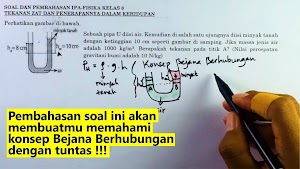 SOAL DAN PEMBAHASAN IPA-FISIKA KELAS 8
TEKANAN ZAT DAN PENERAPANNYA DALAM KEHIDUPAN
Perhatikan gambar di bawah.
Sebuah pipa U diisi air. Kemudian di salah satu ujungnya diisi minyak tanah
dengan ketinggian 10 cm seperti gambar di samping. Jika massa jenis air
adalah 1000 kg/m³. Berapakah tekanan pada titik A? (Nilai percepatan
gravitasi bumi adalah 10 N/kg)
h = 10cm
Konsep Bejana Berhubungan
minyak
tanah
minyak
air
Pembahasan soal ini akan
membuatmu memahami
konsep Bejana Berhubungan
dengan tuntas !!!